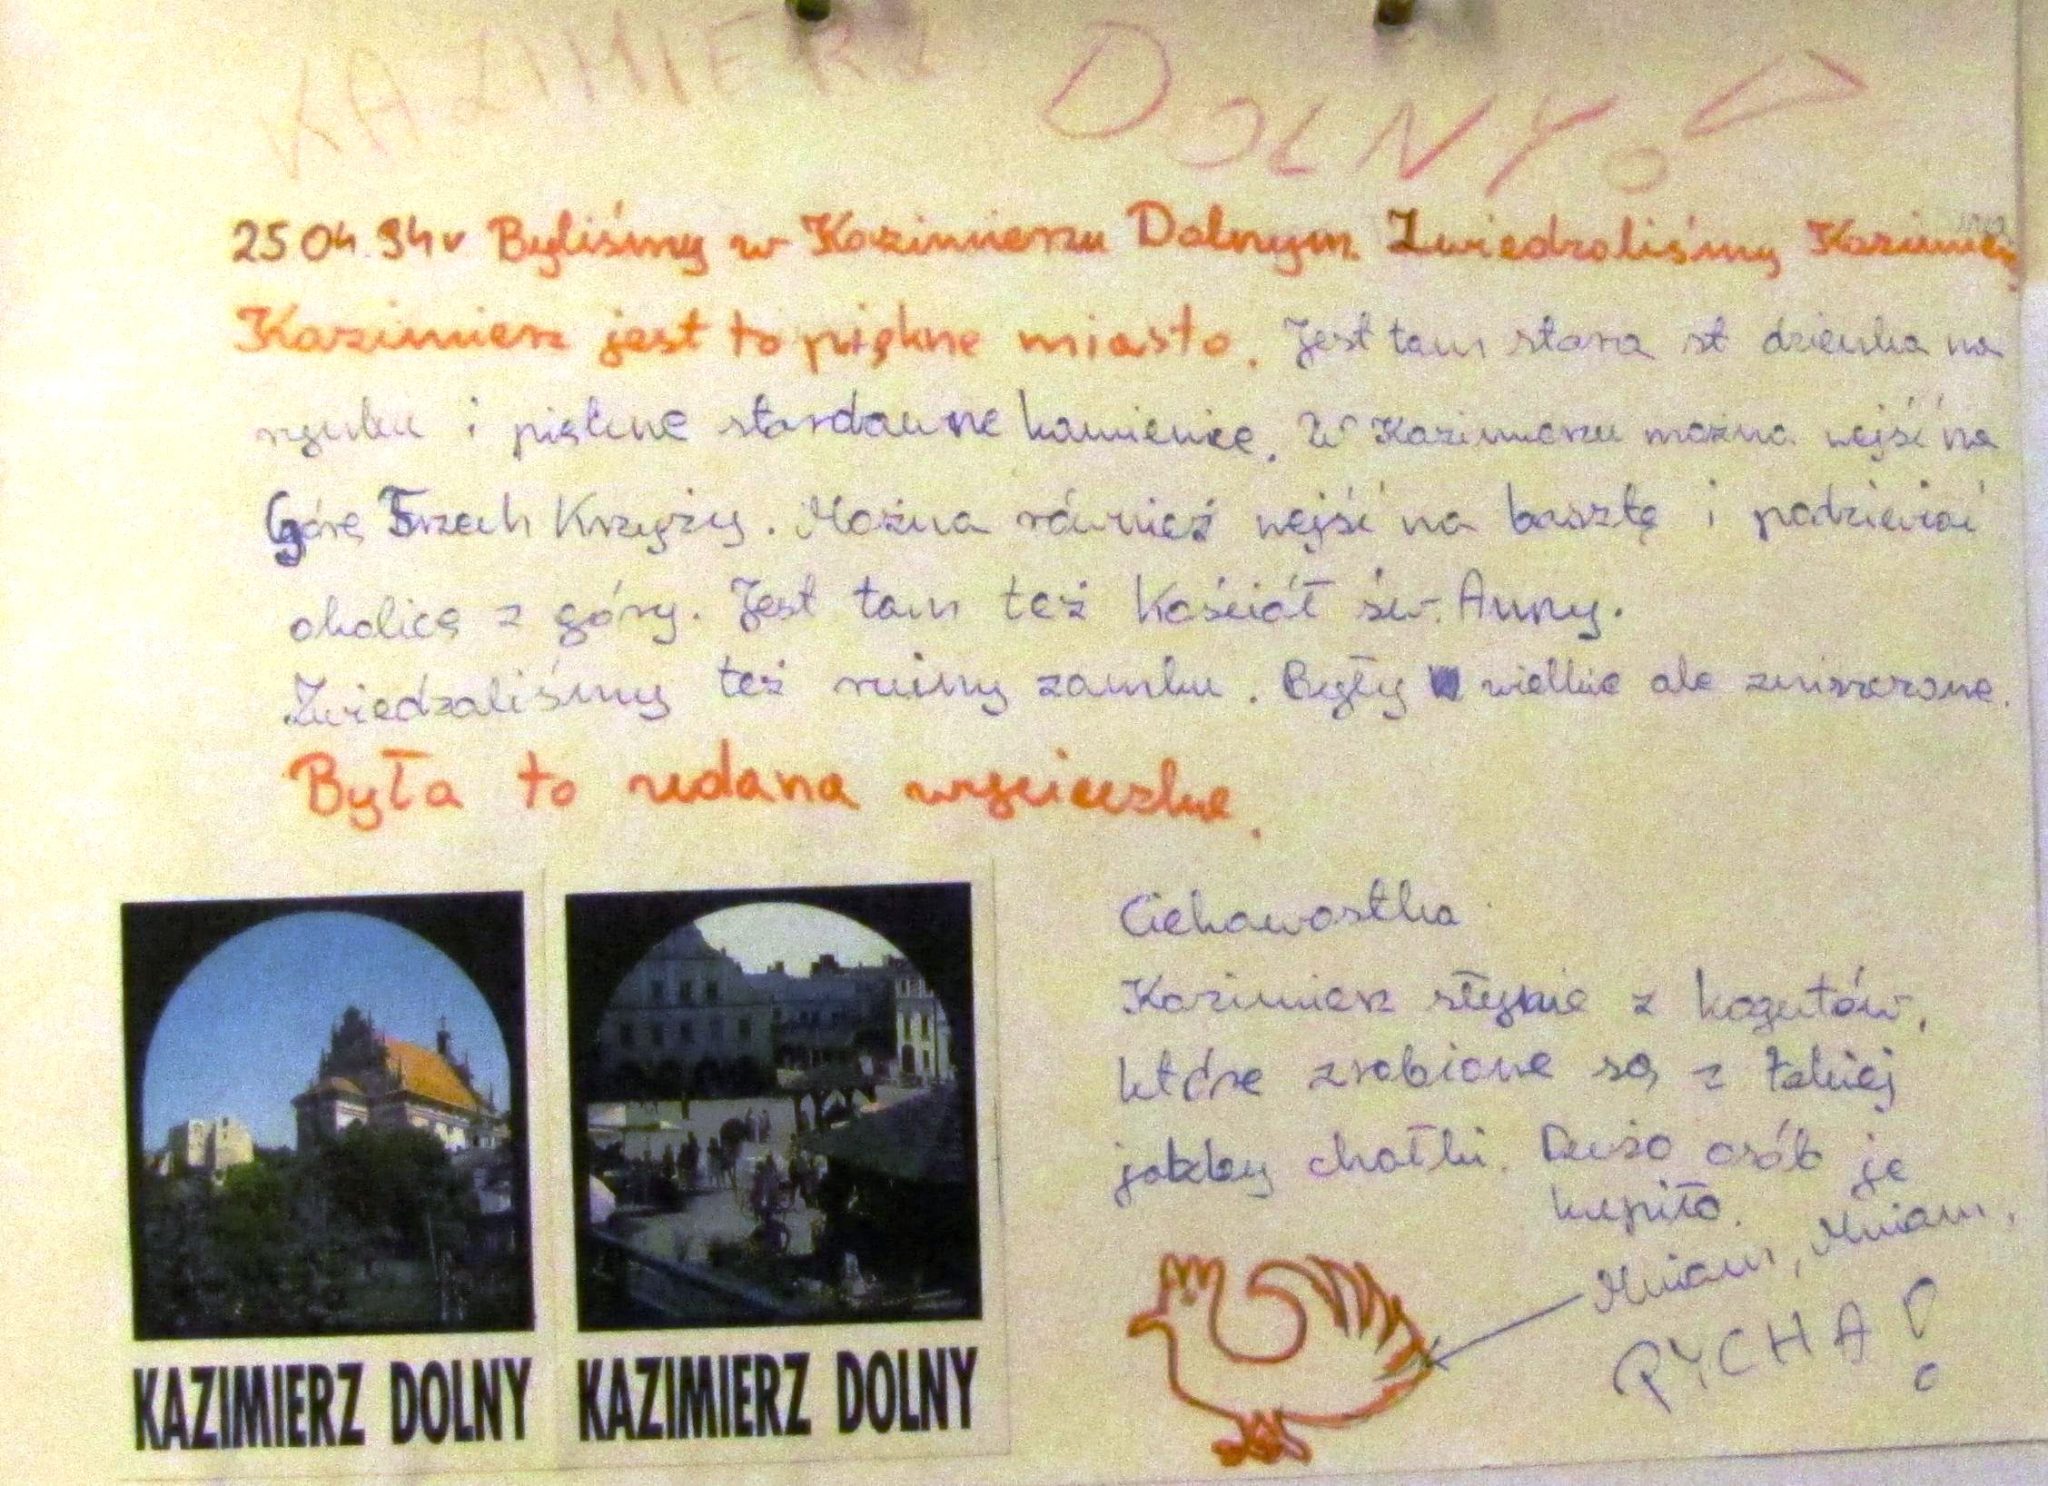 KAZIMIERZ DOLNY!
25.04.94r Byliśmy w Kazimierzu Dolnym. Zwiedzaliśmy Kazimierz.
Kazimierz jest to piękne miasto. Jest tam stara st dzienka na
rynku i piękne stardawne kamienice. W Kazimierzu można wejść na
Górę Trzech Krzyży. Można również wejść na basztę i podziwiać
okolicę z góry. Jest tam też Kościół św. Anny.
Zwiedzaliśmy też ruiny zamku. Były wielkie ale zniszczone.
Była to udana wycieczka.
KAZIMIERZ DOLNY
KAZIMIERZ DOLNY
Ciekawostka
Kazimierz słynie z kogutów,
które zrobione są z takiej
jakby chałki. Dużo osób je
kupiło.
Mniam, Mniam,
PYCHA!